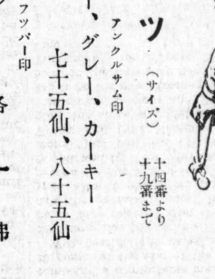 ツ
(サイズ)
十四番より
十九番まで
アンクルサム印
ー、グレー、カーキー
七十五仙、八十五仙
フツバー印
一